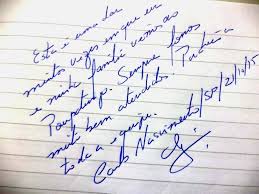 Esta é uma das
muitas vezes em que eu
e minha família viemos ao
Poupatempo. Sempre fomos
muito bem atendidos. Parabéns a
toda a equipe.
Carlos Nascimento/SP/21/10/15